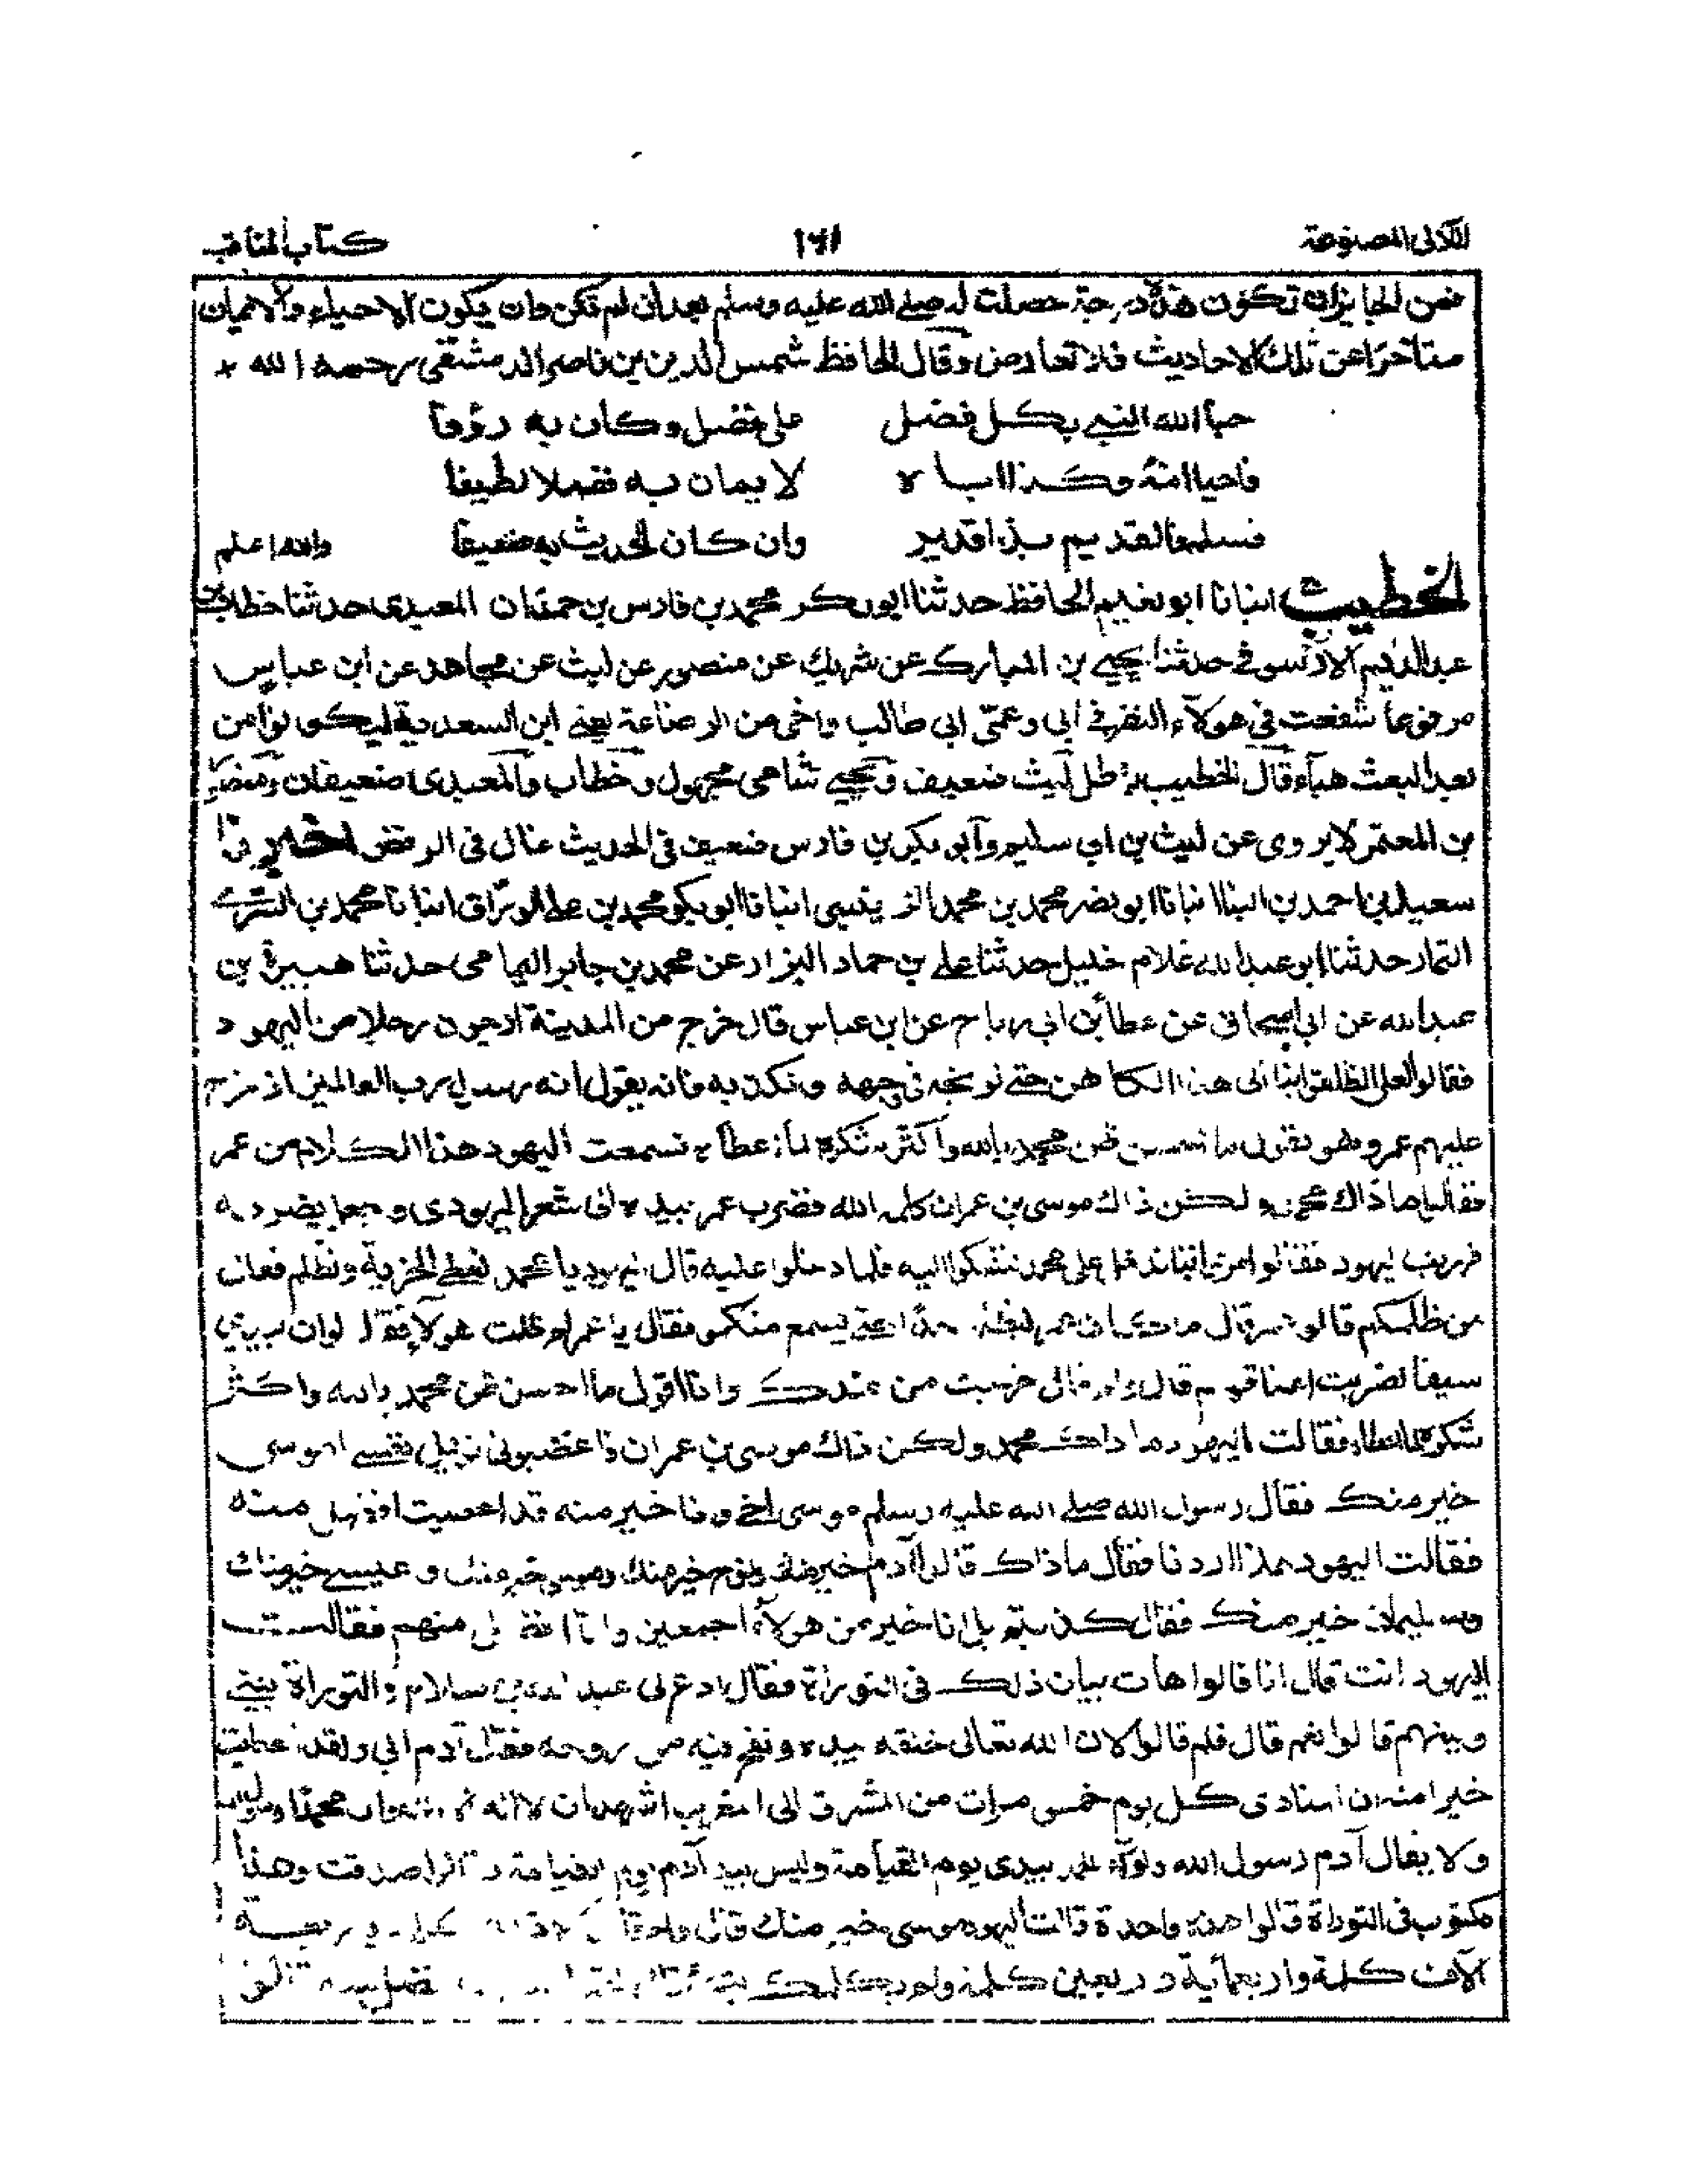 اللآلى المصنوعة
١٦١
كتاب المناقب
فمن الجايزان تكون هذه درجة حصلت له صلے الله عليه وسلم بعد ان لم تكن وان يكون الاحياء والايمان
متأخرا عن تلك الاحاديث فلا تعارض وقال الحافظ شمس الدين بن ناصر الدمشقى رحمه الله
حبا الله النبى بكل فضل على فضل وكان به رؤفا
فاحيا امه وكذا اباه لايمان به فضلا لطيفا
فسلم فالقديم بذا قدير وان كان الحديث به ضعيفا والله اعلم
الخطيب انبانا ابو نعيم الحافظ حدثنا ابو بكر محمد بن فارس بن حمدان المعبدى حدثنا خطاب بن
عبد الدايم الارسوفى حدثنا يحيے بن المبارك عن شريك عن منصور عن ليث عن مجاهد عن ابن عباس
مرفوعا شفعت فى هولاء النفر فى ابى وعمى ابى طالب واخى من الرضاعة يعنى ابن السعدية ليكونوا من
بعد البعث هباء قال الخطيب باطل ليث ضعيف ويحيے شامى مجهول وخطاب والمعبدى ضعيفان ومنصور
بن المعتمر لا يروى عن ليث بن ابى سليم وابو بكر بن فارس ضعيف فى الحديث غال فى الرفض اخبرنا
سعيد بن احمد بن البنا انبانا ابو نصر محمد بن محمد الزينبى انبانا ابو بكر محمد بن على الوراق انبانا محمد بن السرى
التمار حدثنا ابو عبد الله غلام خليل حدثنا على بن حماد البزار عن محمد بن جابر اليمامى حدثنا هبيرة بن
عبد الله عن ابى اسحاق عن عطا بن ابى رباح عن ابن عباس قال خرج من المدينة اربعون رجلا من اليهود
فقالوا انطلقوا بنا الى هذا الكاهن حتى نوبخه فى وجهه ونكذبه فانه يقول انه رسول رب العالمين اذ خرج
عليهم عمرو هو يقول ما احسن ظن محمد بالله واكثر شكره لما اعطاه فسمعت اليهود هذا الكلام من عمر
فقالوا ما ذاك محمد ولكن ذاك موسى بن عمران كلمه الله فضرب عمر بيده الى شعر اليهودى وجعل يضربه
فهربت اليهود فقالوا مروا بنا ندخل على محمد نشكو اليه فلما دخلوا عليه قالوا يا محمد نعطى الجزية ونظلم فقال
من ظلمكم قالوا عمر قال ما كان عمر ليظلم احدا حتى يسمع منكرا فقال يا عمر لم ظلمت هولاء فقال لو ان بيدى
سيفا لضربت اعناقهم قال ولم قال خرجت من عندك وانا اقول ما احسن ظن محمد بالله واكثر
شكره لما اعطاه فقالت اليهود ما ذاك محمد ولكن ذاك موسى بن عمران فاغضبونى فويل نفسے اموسى
خير منك فقال رسول الله صلے الله عليه وسلم موسى اخى وانا خير منه قد اعطيت افضل منه
فقالت اليهود هذا اردنا فقال ما ذاك قالوا آدم خير منك ونوح خير منك وموسى خير منك وعيسے خير منك
وسليمان خير منك فقال كذبتم بل انا خير من هولاء اجمعين وانا افضل منهم فقالت
اليهود انت قال انا قالوا هات بيان ذلك فى التوراة فقال ادع لى عبد الله بن سلام والتوراة بينى
وبينهم قالوا نعم قال فلم قالوا لان الله تعالى خلقه بيده ونفخ فيه من روحه فقال آدم ابى ولقد اعطيت
خيرا منه ان المنادى كل يوم خمس مرات من المشرق الى المغرب اشهد ان لا اله محمدا رسول الله
ولا يقال آدم رسول الله ولواء الحمد بيدى يوم القيامة وليس بيد آدم يوم القيامة قالوا صدقت وهذا
مكتوب فى التوراة قالوا هذه واحدة قالت اليهود موسى خير منك قال ولم قالوا
الآف كلمة واربعماية واربعين كلمة ولم يكلمك